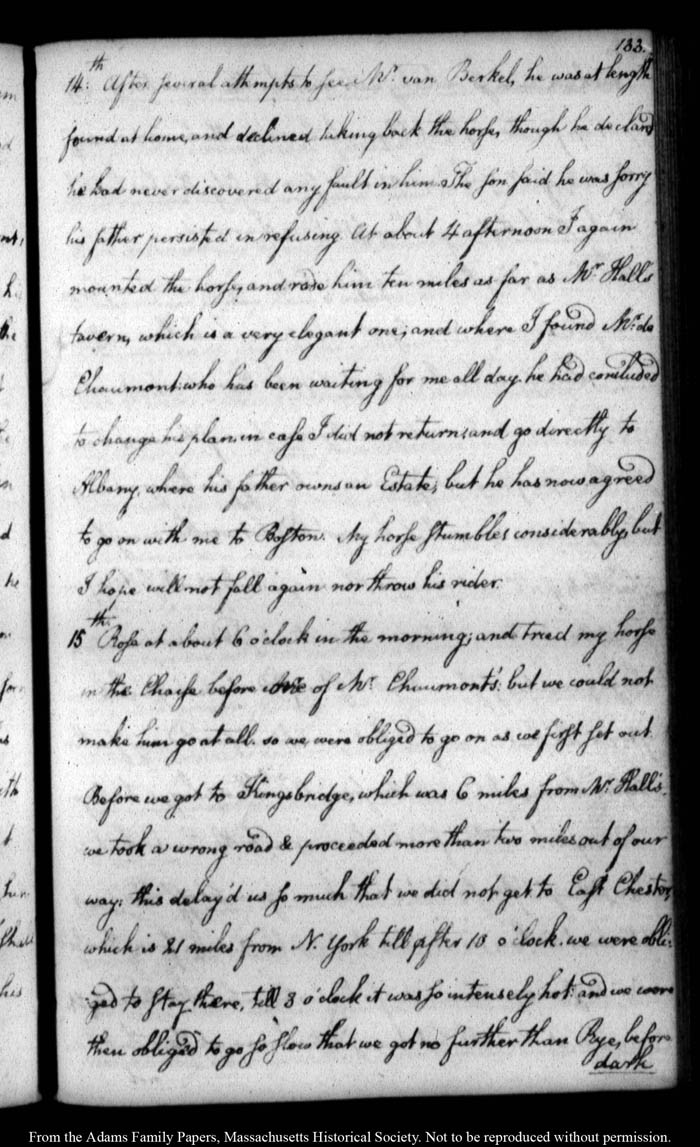 133.
14.th After several attempts to see Mr. van Berkel, he was at length
found at home, and declined taking back the horse, though he declared
he had never discovered any fault in him. The son said he was sorry
his father persisted in refusing. At about 4 afternoon I again
mounted the horse, and rode him ten miles as far as Mr. Hall's
tavern, which is a very elegant one; and where I found Mr. de
Chaumont: who has been waiting for me all day. he had concluded
to change his plan, in case I did not return; and go directly to
Albany, where his father owns an Estate; but he has now agreed
to go on with me to Boston. My horse stumbles considerably, but
I hope will not fall again nor throw his rider.
15th. Rose at about 6 o'clock in the morning; and tried my horse
in the Chaise before one of Mr. Chaumont's: but we could not
make him go at all. so we were obliged to go on as we first set out.
Before we got to Kingsbridge, which was 6 miles from Mr. Hall's,
we took a wrong road & proceeded more than two miles out of our
way: this delay'd us so much that we did not get to East Chester,
which is 21 miles from N. York till after 10 o'clock. we were obli-
ged to stay there, till 3 o'clock it was so intensely hot: and we were
then obliged to go so slow that we got no further than Rye, before
dark
From the Adams Family Papers, Massachusetts Historical Society. Not to be reproduced without permission.